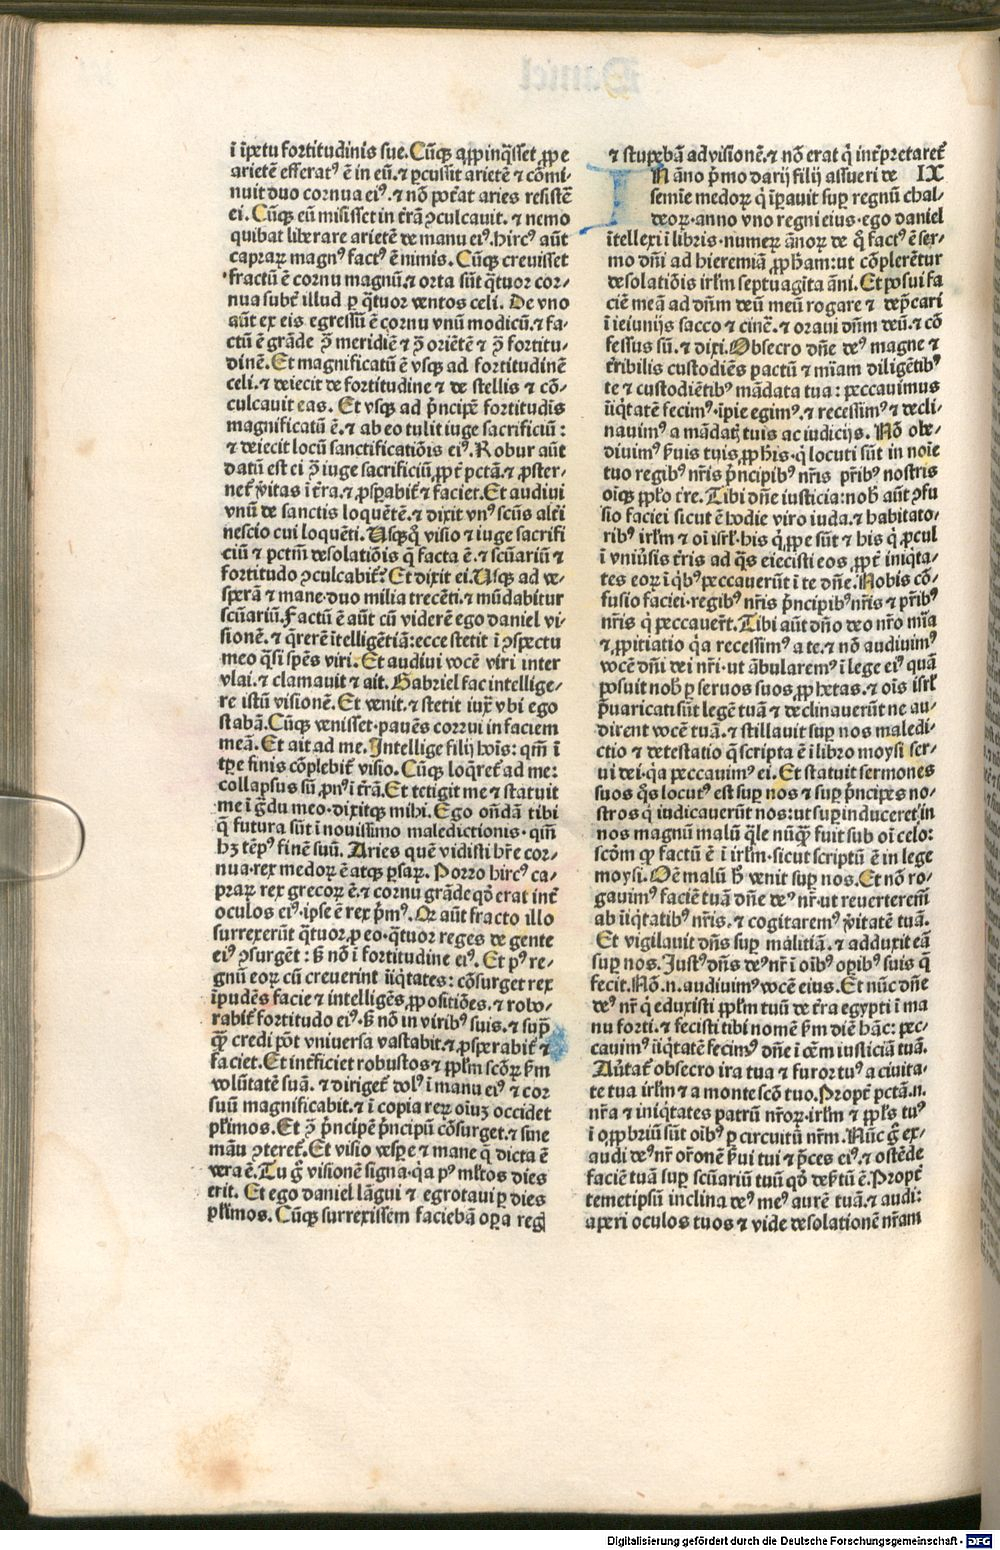 ī īpetu fortitudinis sue. Cūq₃ ꝓpinq̄sset ꝓpe
arietē efferatꝰ ē in eū. ⁊ ꝑcussit arietē ⁊ cōmi⸗
nuit duo cornua eiꝰ. ⁊ nō poťat aries resistē
ei. Cūq₃ eū misisset in ťrā ꝯculcauit. ⁊ nemo
quibat liberare arietē de manu eiꝰ. hircꝰ aūt
capraꝝ magnꝰ factꝰ ē nimis. Cūq₃ creuisset
fractū ē cornu magnū ⁊ orta sūt q̄tuor cor⸗
nua subť illud ꝑ q̄tuor ventos celi. De vno
aūt ex eis egressū ē cornu vnū modicū. ⁊ fa⸗
ctū ē grāde ꝯ̄ meridiē ⁊ ꝯ̄ oriētē ⁊ ꝯ̄ fortitu⸗
dinē. Et magnificatū ē vsq₃ ad fortitudinē
celi. ⁊ deiecit de fortitudine ⁊ de stellis ⁊ cō⸗
culcauit eas. Et vsq₃ ad p̄ncipē fortitudīs
magnificatū ē. ⁊ ab eo tulit iuge sacrificiū :
⁊ deiecit locū sanctificatiōis eiꝰ. Robur aūt
datū est ei ꝯ̄ iuge sacrificiū ꝓpť pctā. ⁊ ꝓster⸗
neť v̄itas ī ťra. ⁊ ꝓsꝑabiť ⁊ faciet. Et audiui
vnū de sanctis loquētē. ⁊ dixit vnꝰ scūs alťi
nescio cui loquēti. Usq₃q̊ visio ⁊ iuge sacrifi
ciū ⁊ pctm̄ desolatiōis q̄ facta ē. ⁊ scūariū ⁊
fortitudo ꝯculcabiť? Et dixit ei. Usq₃ ad ve⸗
sperā ⁊ mane · duo milia trecēti. ⁊ mūdabitur
scūariū. Factū ē aūt cū viderē ego daniel vi⸗
sionē. ⁊ q̄rerē ītelligētiā: ecce stetit ī ꝯspectu
meo q̄si spēs viri. Et audiui vocē viri inter
vlai. ⁊ clamauit ⁊ ait. Gabriel fac intellige⸗
re istū visionē. Et venit. ⁊ stetit iux̄ vbi ego
stabā. Cūq₃ venisset · pauēs corrui in faciem
meā. Et ait ad me. Intellige filij hoīs: qm̄ ī
tꝑe finis cōplebiť visio. Cūq₃ loq̄reť ad me:
collapsus sū ꝓnꝰ ī ťrā. Et tetigit me ⁊ statuit
me ī g̊du meo · dixitq₃ mihi. Ego ondā tibi
q̄ futura sūt ī nouissimo maledictionis · qm̄
h₃ tēpꝰ finē suū. Aries quē vidisti hr̄e cor⸗
nua · rex medoꝝ ē atq₃ ꝑsaꝝ. Porro hircꝰ ca⸗
praꝝ rex grecoꝝ ē. ⁊ cornu grāde qď erat inť
oculos eiꝰ · ipse ē rex p̄mꝰ. Qď aūt fracto illo
surrexerūt q̄tuor ꝑ eo · q̄tuor reges de gente
eiꝰ ꝯsurgēt : sꝫ nō ī fortitudine eiꝰ. Et pꝰ re⸗
gnū eoꝝ cū creuerint īiq̄tates : cōsurget rex
īpudēs facie ⁊ intelligēs ꝓpositiōes. ⁊ robo⸗
rabiť fortitudo eiꝰ · sꝫ nō in viribꝰ suis. ⁊ suꝑ
q̄ꝫ credi pōt vniuersa vastabit. ⁊ ꝓsperabiť ⁊
faciet. Et inťficiet robustos ⁊ ppl̄m scōꝝ ẜm
volūtatē suā. ⁊ dirigeť dolꝰ ī manu eiꝰ ⁊ cor
suū magnificabit. ⁊ ī copia reꝝ oīuꝫ occidet
pl̄imos. Et ꝯ̄ p̄ncipē p̄ncipū cōsurget. ⁊ sine
manu ꝯtereť. Et visio vesꝑe ⁊ mane q̄ dicta ē
vera ē. Tu g̊ visionē signa · q̇a pꝰ ml̄tos dies
erit. Et ego daniel lāgui ⁊ egrotaui ꝑ dies
pl̄imos. Cūq₃ surrexissem faciebā oꝑa regꝭ
⁊ stupebā ad visionē. ⁊ nō erat q̇ inťpretareť
IN āno p̄mo darij filij assueri de IX
semie medoꝝ q̇ īꝑauit suꝑ regnū chal⸗
deoꝝ · anno vno regni eius · ego daniel
ītellexi ī libris · numeꝝ ānoꝝ de q̊ factꝰ ē ser⸗
mo dn̄i ad hieremiā ꝓph̄am: ut cōplerētur
desolatiōis irl̄m septuagīta āni. Et posui fa
ciē meā ad dn̄m deū meū rogare ⁊ dep̄cari
ī ieiunijs sacco ⁊ cinē. ⁊ oraui dn̄m deū. ⁊ cō
fessus sū. ⁊ dixi. Obsecro dn̄e deꝰ magne ⁊
ťribilis custodiēs pactū ⁊ mīam diligētibꝰ
te ⁊ custodiētibꝰ mādata tua : peccauimus
īiq̇tatē fecimꝰ · īpie egimꝰ. ⁊ recessimꝰ ⁊ decli⸗
nauimꝰ a mādatꝭ tuis ac iudicijs. Nō obe⸗
diuimꝰ ẜuis tuis ꝓph̄is · q̇ locuti sūt in noīe
tuo regibꝰ nr̄is p̄ncipibꝰ nr̄is pr̄ibꝰ nostris
oīq₃ ppl̄o ťre. Tibi dn̄e iusticia: nob̄ aūt ꝯfu
sio faciei sicut ē hodie viro iuda. ⁊ habitato⸗
ribꝰ irl̄m ⁊ oī isrl̄ · his q̇ ꝓpe sūt ⁊ his q̇ ꝓcul
ī vniūsis ťris ad q̄s eiecisti eos ꝓpť iniq̇ta⸗
tes eoꝝ ī q̇bꝰ peccauerūt ī te dn̄e. Nobis cō⸗
fusio faciei · regibꝰ nr̄is p̄ncipibꝰ nr̄is ⁊ pr̄ibꝰ
nr̄is q̇ peccauer̄t. Tibi aūt dn̄o deo nr̄o mīa
⁊ ꝓpitiatio q̇a recessimꝰ a te. ⁊ nō audiuimꝰ
vocē dn̄i dei nr̄i · ut ābularemꝰ ī lege eiꝰ quā
posuit nob̄ ꝑ seruos suos ꝓphetas. ⁊ oīs isrl̄
p̄uaricati sūt legē tuā ⁊ declinauerūt ne au⸗
dirent vocē tuā. ⁊ stillauit suꝑ nos maledi⸗
ctio ⁊ detestatio q̄ scripta ē ī libro moysi ser⸗
ui dei · q̇a peccauimꝰ ei. Et statuit sermones
suos q̊s locutꝰ est suꝑ nos ⁊ suꝑ p̄ncipes no⸗
stros q̇ iudicauerūt nos: ut suꝑinduceret in
nos magnū malū q̄le nūq̄ꝫ fuit sub oī celo:
scd̄m qď factū ē ī irl̄m · sicut scriptū ē in lege
moysi. Oē malū h̊ venit suꝑ nos. Et nō ro⸗
gauimꝰ faciē tuā dn̄e deꝰ nr̄ · ut reuerteremꝰ
ab īiq̇tatibꝰ nr̄is. ⁊ cogitaremꝰ v̄itatē tuā.
Et vigilauit dn̄s suꝑ malitiā. ⁊ adduxit eā
suꝑ nos. Justꝰ dn̄s deꝰ nr̄ ī oībꝰ oꝑibꝰ suis q̄
fecit. Nō .n. audiuimꝰ vocē eius. Et nūc dn̄e
deꝰ nr̄ q̇ eduxisti ppl̄m tuū de ťra egypti ī ma
nu forti. ⁊ fecisti tibi nomē ẜm diē hāc: pec⸗
cauimꝰ īiq̇tatē fecimꝰ dn̄e ī oēm iusticiā tuā.
Auťať obsecro ira tua ⁊ furor tuꝰ a ciuita⸗
te tua irl̄m ⁊ a monte scō tuo. Propť pctā .n.
nr̄a ⁊ iniq̇tates patrū nr̄oꝝ · irl̄m ⁊ ppl̄s tuꝰ
ī oꝓbriū sūt oībꝰ ꝑ circuitū nr̄m. Nūc g̊ ex⸗
audi deꝰ nr̄ or̄onē ẜui tui ⁊ p̄ces eiꝰ. ⁊ ostēde
faciē tuā suꝑ scūariū tuū qď deẜtū ē. Propť
temetipsū inclina deꝰ meꝰ aurē tuā. ⁊ audi:
aperi oculos tuos ⁊ vide desolationē nr̄am
Digitalisierung gefördert durch die Deutsche Forschungsgemeinschaft - DFG